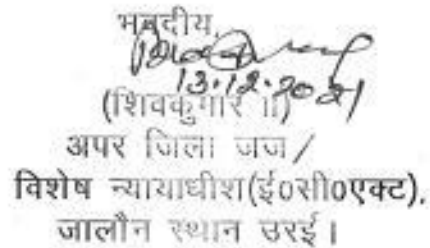 भवदीय,
13.12.2021
(शिवकुमार II)
अपर जिला जज/
विशेष न्यायाधीश(ई०सी०एक्ट),
जालौन स्थान उरई।